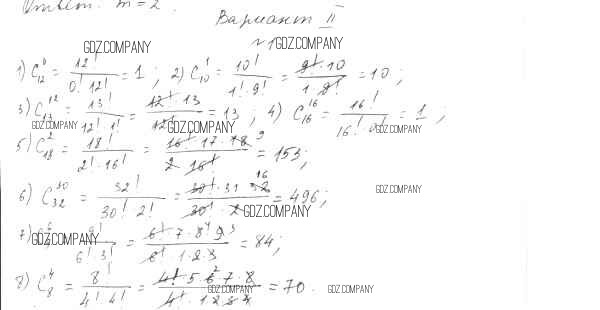 Ответ: m = 2.
Вариант II
№ 1
1) C₁₂⁰ = 12! / (0! 12!) = 1; 2) C₁₀¹ = 10! / (1! · 9!) = (9! · 10) / (1 · 9!) = 10;
3) C₁₃¹² = 13! / (12! · 1!) = (12! · 13) / 12! = 13; 4) C₁₆¹⁶ = 16! / (16! · 0!) = 1;
5) C₁₈² = 18! / (2! · 16!) = (16! · 17 · 18 9) / (2 · 16!) = 153;
6) C₃₂³⁰ = 32! / (30! · 2!) = (30! · 31 · 32 16) / (30! · 2) = 496;
7) 9! / (6! · 3!) = (6! · 7 · 8⁴ · 9³) / (6! · 1 · 2 · 3) = 84;
8) C₈⁴ = 8! / (4! · 4!) = (4! · 5 · 6² · 7 · 8) / (4! · 1 · 2 · 3 · 4) = 70.
GDZ.COMPANY
GDZ.COMPANY
GDZ.COMPANY
GDZ.COMPANY
GDZ.COMPANY
GDZ.COMPANY
GDZ.COMPANY
GDZ.COMPANY
GDZ.COMPANY
GDZ.COMPANY